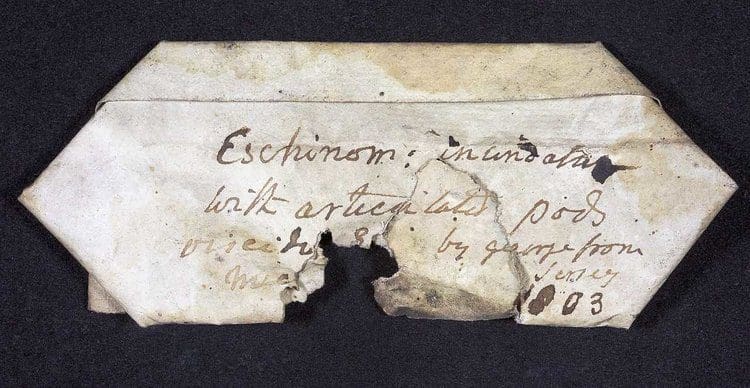 Eschinom: inundatum
with articulated pods
viscid by george from
Jersey
1803